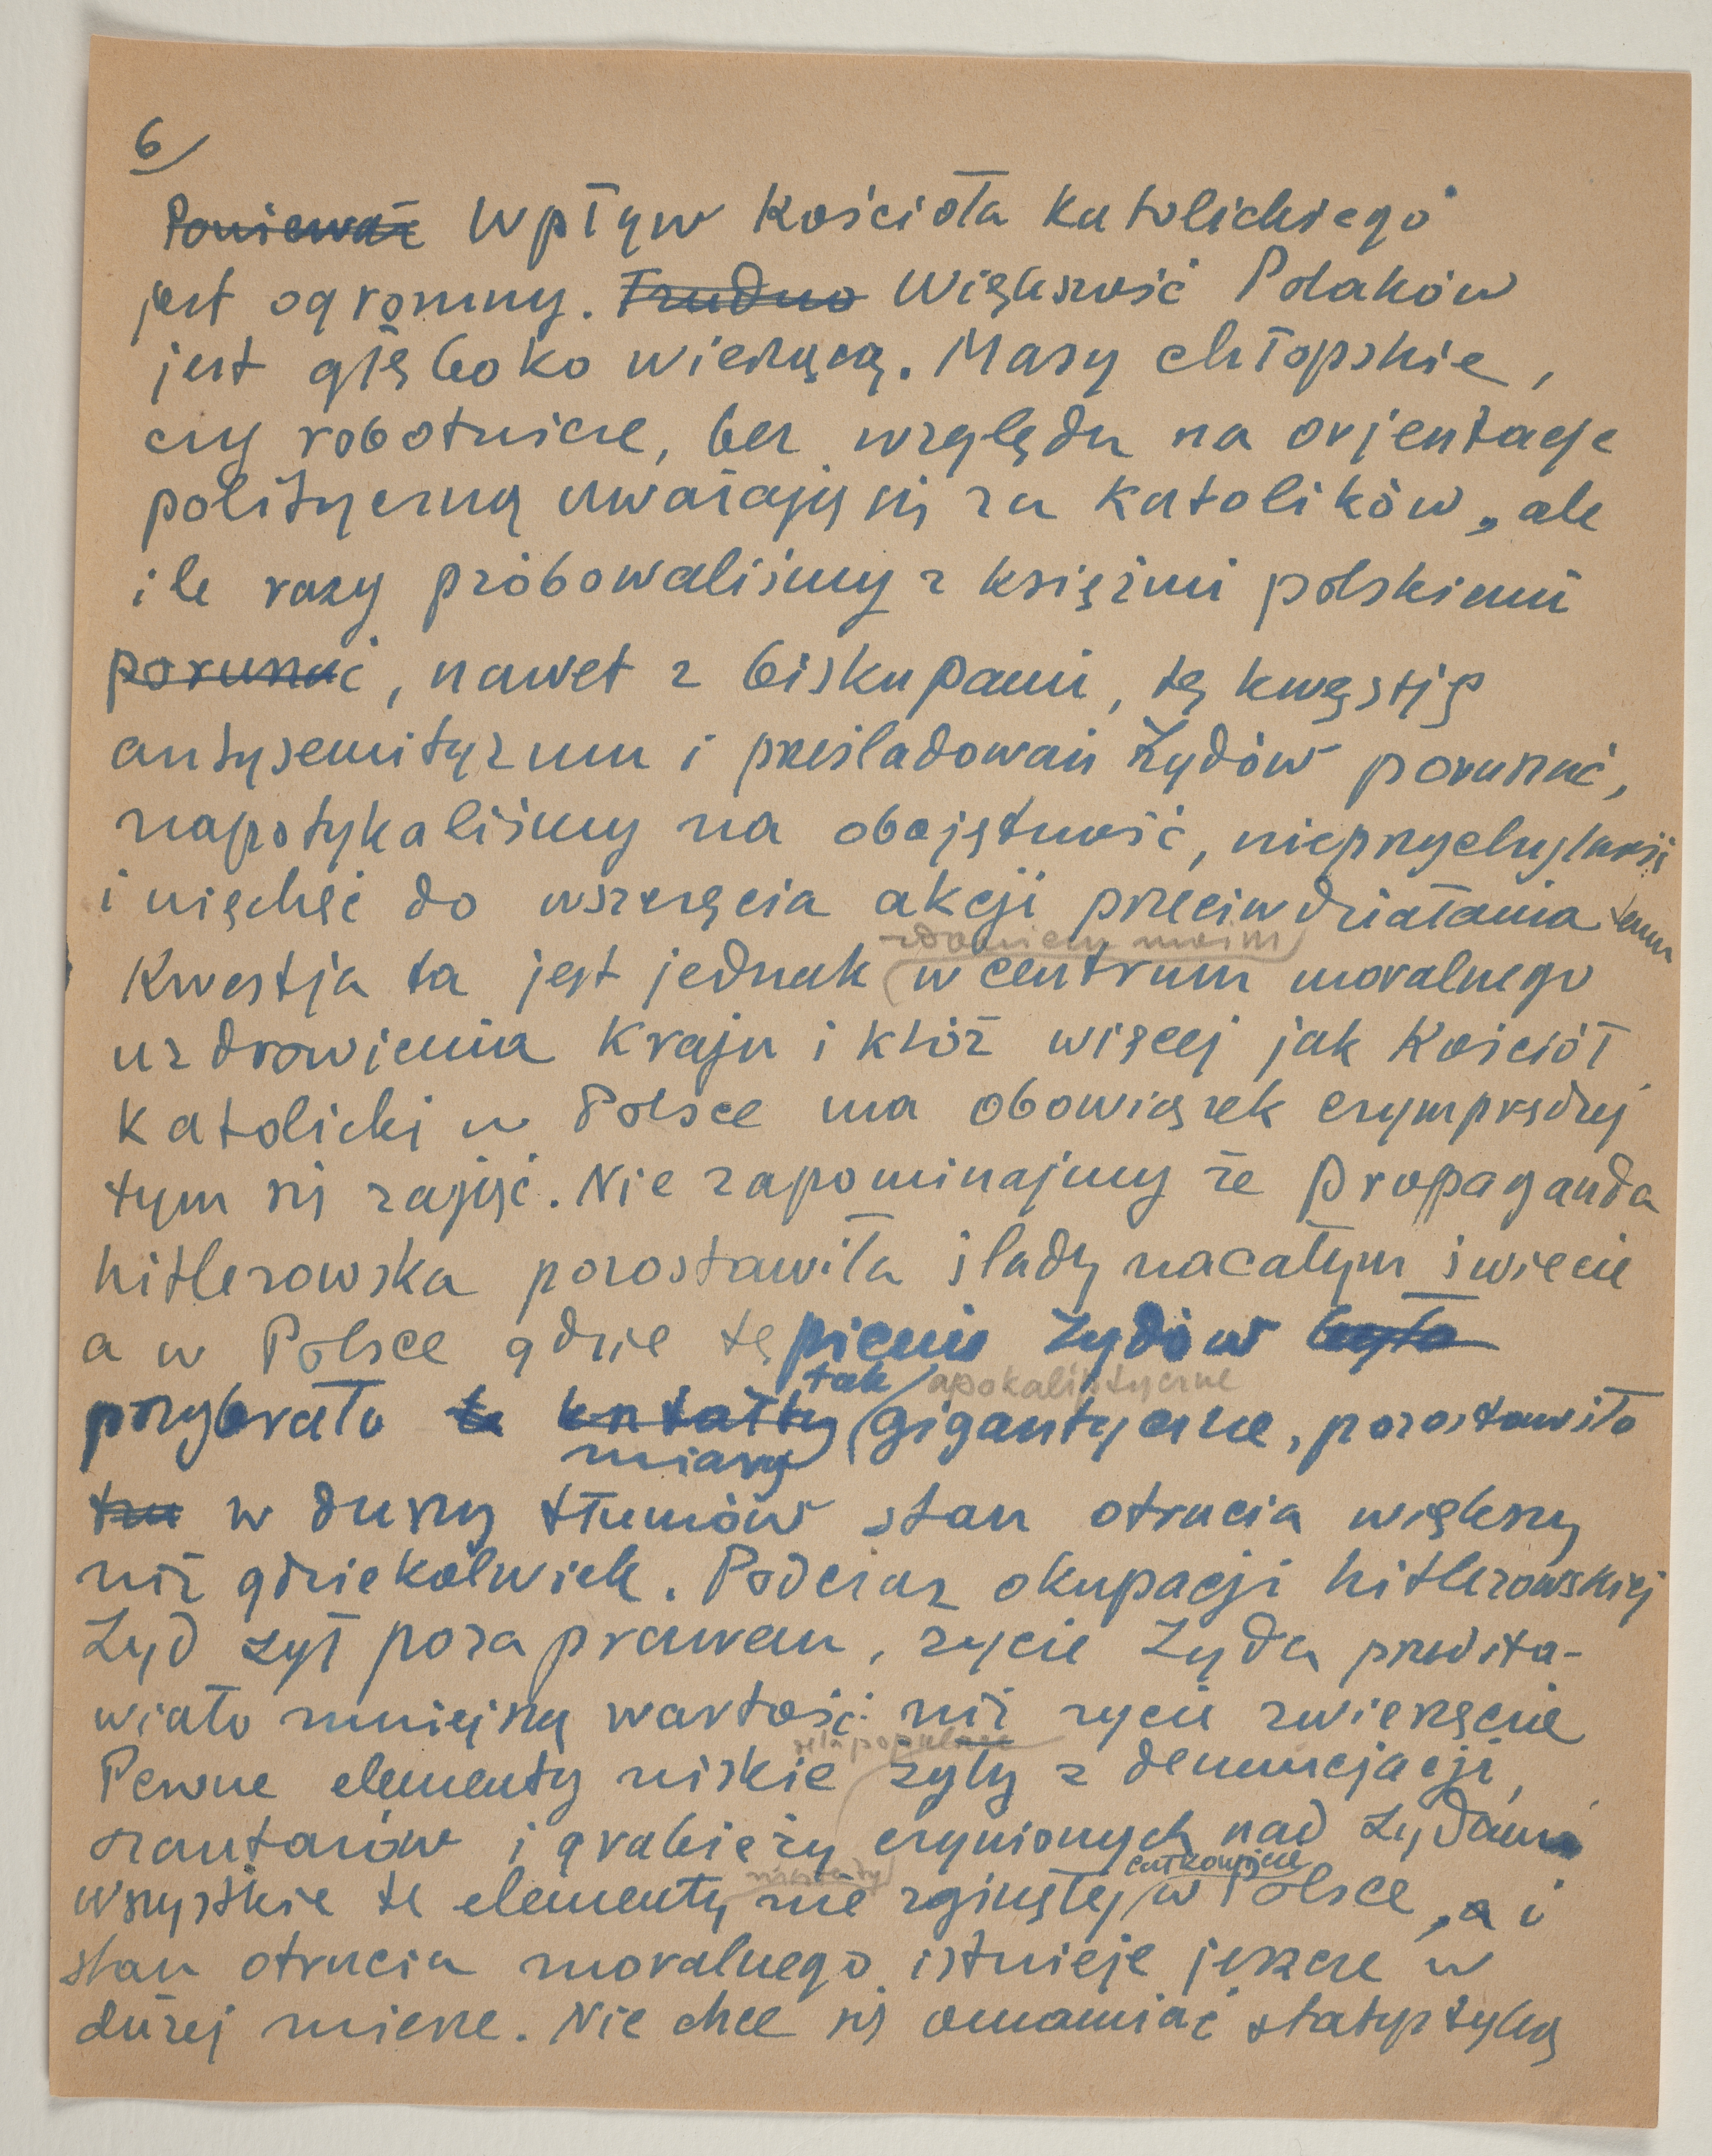 6/
Ponieważ Wpływ Kościoła katolickiego
jest ogromny. Trudno Większość Polaków
jest głęboko wierzącą. Masy chłopskie,
czy robotnicze, bez względu na orjentacje
polityczną uważają się za katolików, ale
ile razy próbowaliśmy z księżmi polskimi
poruszać, nawet z biskupami, tę kwęstję
antysemityzmu i prześladowań Żydów poruszać,
napotykaliśmy na obojętność, nieprzychylność
i nięchęć do wszczęcia akcji przeciwdziałania temu
zdaniem moim
Kwestja ta jest jednak w centrum moralnego
uzdrowienia Kraju i któż więcej jak Kościół
Katolicki w Polsce ma obowiązek czymprędzej
tym się zająć. Nie zapominajmy że propaganda
hitlerowska pozostawiła ślady na całym świecie
a w Polsce gdzie tępienie Żydów było
tak apokaliptyczne
przybrało te kształty gigantyczne, pozostawiło
miary
w duszy tłumów stan otrucia większy
niż gdziekolwiek. Podczas okupacji hitlerowskiej
Żyd żył poza prawem, życie Żyda przedsta-
wiało mniejszą wartość niż życie zwierzęcie
Pewne elementy niskie żyły z denuncjacji,
szantażów i grabieży czynionych nad Żydami
całkowicie
wszystkie te elementy nie zginęły w Polsce, a i
stan otrucia moralnego istnieje jeszcze w
dużej mierze. Nie chce się omamiać statystyką